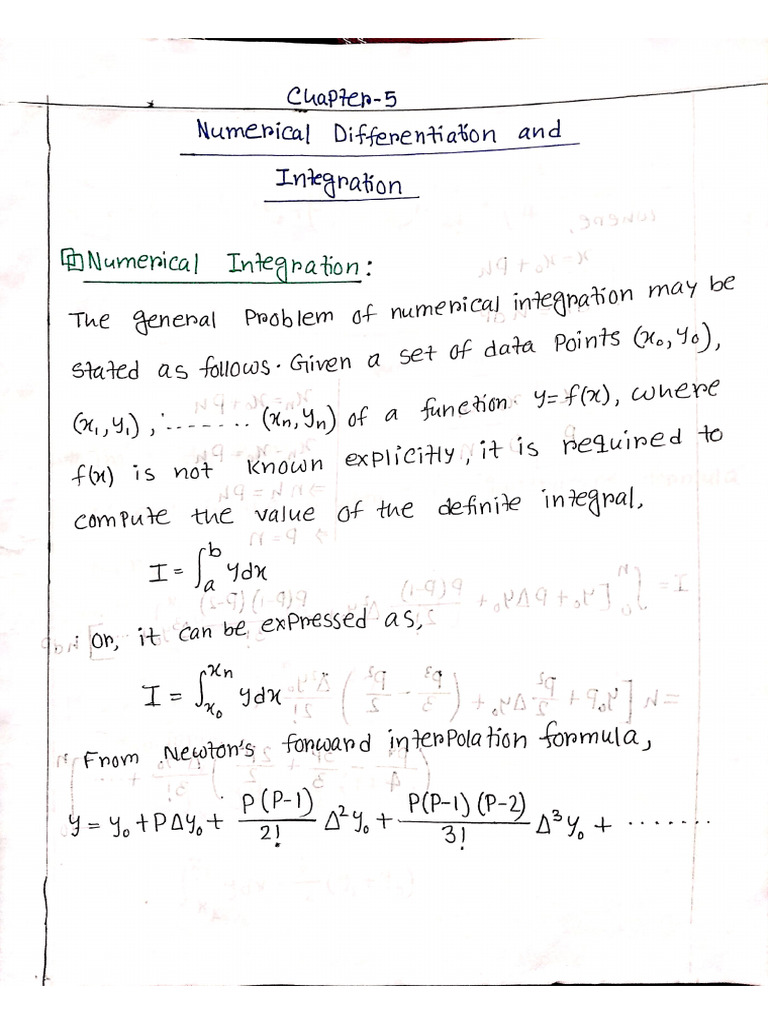 Chapter-5
Numerical Differentiation and
Integration
Numerical Integration:
The general Problem of numerical integration may be
stated as follows. Given a set of data Points (x₀, y₀),
(x₁, y₁), ....... (xₙ, yₙ) of a function y = f(x), where
f(x) is not known explicitly, it is required to
compute the value of the definite integral,
I = ∫ₐᵇ ydx
Or, it can be expressed as,
I = ∫_{x₀}^{xₙ} ydx
From Newton's forward interpolation formula,
y = y₀ + PΔy₀ + P(P-1)/2! Δ²y₀ + P(P-1)(P-2)/3! Δ³y₀ + .......